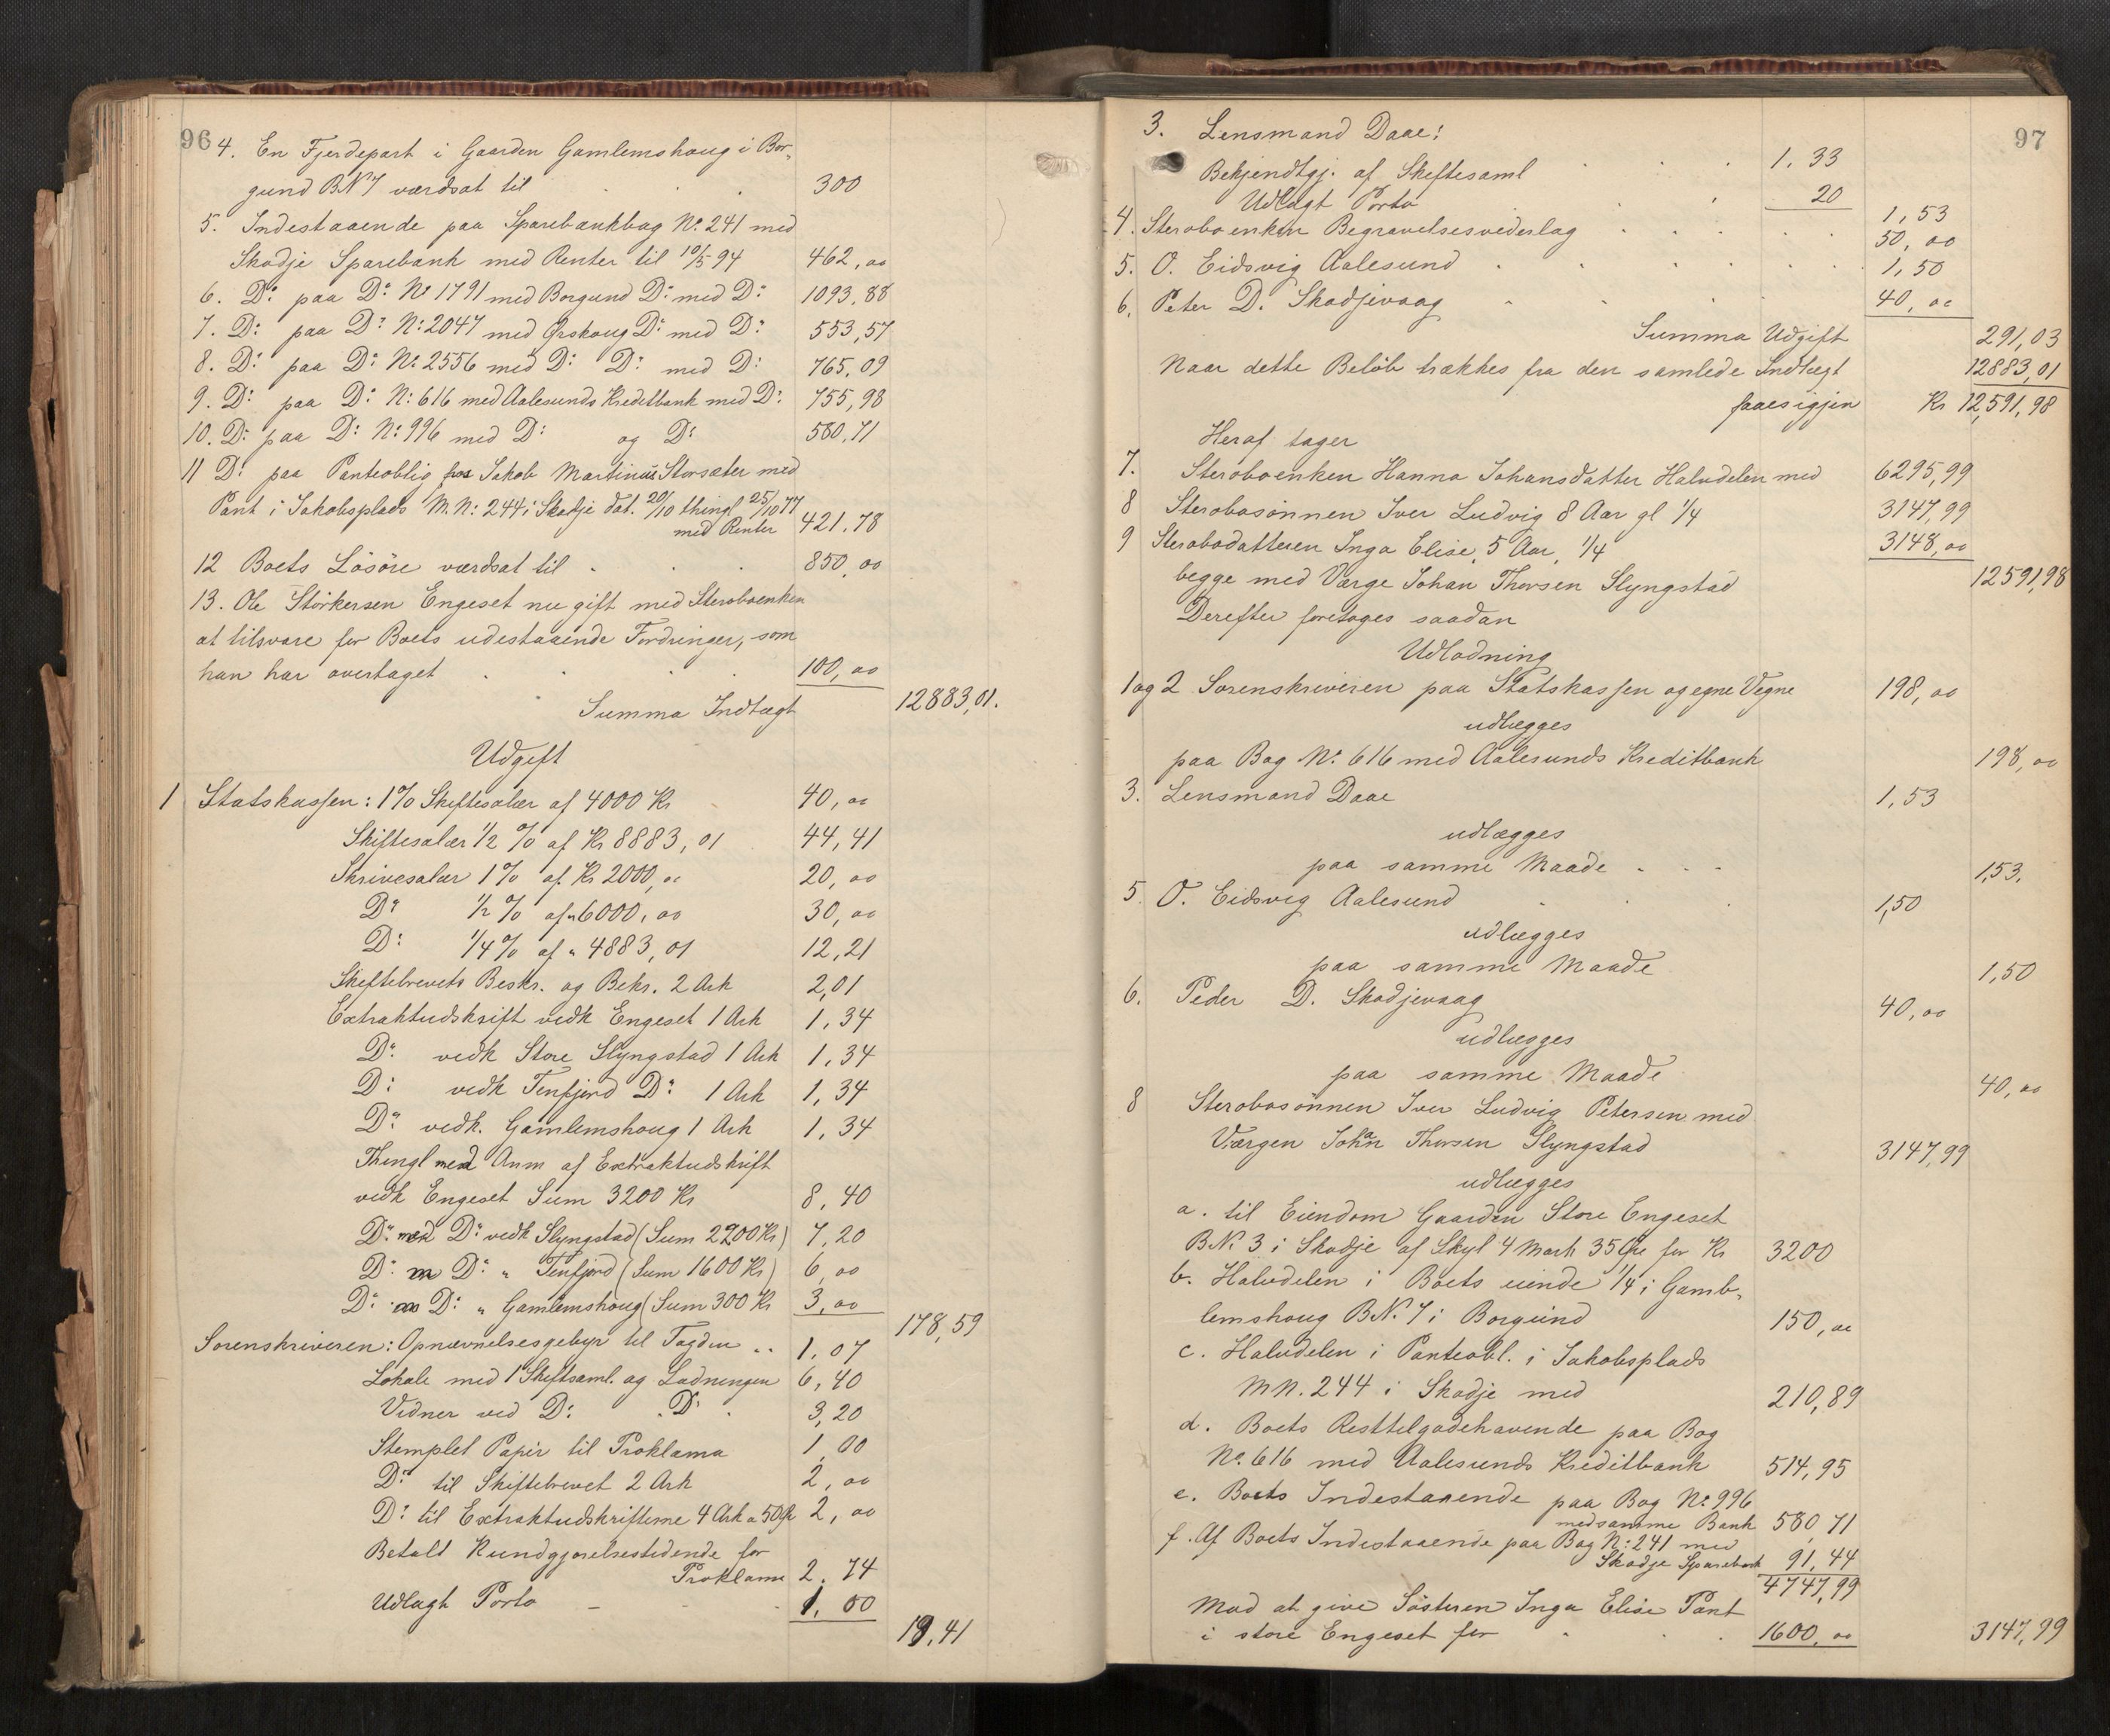 96
4. En Fjerdepart i Gaarden Gamlemshoug i Bor-
gund B.N 7 værdsat til 300
5. Indestaaende paa Sparebankbog No. 241 med
Skodje Sparebank med Renter til 10/5 94 462,00
6. Do: paa Do: No 1791 med Borgund Do: med Do: 1093,88
7. Do: paa Do: No: 2047 med Ørskoug Do: med Do: 553,57
8. Do: paa Do: No: 2556 med Do: Do: med Do: 765,09
9. Do: paa Do: No: 616 med Aalesunds Kreditbank med Do: 755,98
10. Do: paa Do: No: 996 med Do: og Do: 580,71
11 Do: paa Panteoblig. fra Jakob Martinus Storsæter med
Pant i Jakobsplads M.N: 244 i Skodje dat. 20/10 thingl 25/10 77
med Renter 421.78
12 Boets Løsøre værdsat til 850,00
13. Ole Størkersen Engeset nu gift med Sterboenken
at tilsvare for Boets udestaaende Fordringer, som
han har overtaget 100,00
Summa Indtægt 12883,01.
Udgift
1 Statskassen: 1% Skiftesalær af 4000 Kr 40,00
Skiftesalær 1/2 % af Kr 8883,01 44,41
Skrivesalær 1% af Kr 2000,00 20,00
Do: 1/2 % af " 6000,00 30,00
Do: 1/4 % af " 4883,01 12,21
Skiftebrevets Beskr. og Bekr. 2 Ark 2,01
Extraktudskrift vedk Engeset 1 Ark 1,34
Do: vedk Store Slyngstad 1 Ark 1,34
Do: vedk Tenfjord Do: 1 Ark 1,34
Do: vedk. Gamlemshoug 1 Ark 1,34
Thingl med Anm af Extraktudskrift
vedk Engeset Sum 3200 Kr 8,40
Do: med Do: vedk Slyngstad (Sum 2200 Kr) 7,20
Do: m Do: " Tenfjord (Sum 1600 Kr) 6,00
Do: m Do: " Gamlemshoug (Sum 300 Kr 3,00
178,59
Sorenskriveren: Opnævnelsesgebyr til Taxten 1,07
Lokale med 1 Skiftsaml. og Lodningen 6,40
Vidner ved Do: Do: 3,20
Stemplet Papir til Proklama 1,00
Do: til Skiftebrevet 2 Ark 2,00
Do: til Extraktudskrifterne 4 Ark a 50 Øre 2,00
Betalt Kundgjørelsestidende for
Proklama 2.74
Udlagt Porto 1,00
19,41
97
3. Lensmand Daae:
Bekjendtgj. af Skiftesaml 1,33
Udlagt Porto 20
1,53
4. Sterboenken Begravelsesvederlag 50,00
5. O. Eidsvig Aalesund 1,50
6. Peter D. Skodjevaag 40,00
Summa Udgift 291,03
Naar dette Beløb trækkes fra den samlede Indtægt 12883,01
faaes igjen Kr 12,591,98
Heraf tager
7. Sterboenken Hanna Johansdatter Halvdelen med 6295,99
8 Sterbosønnen Iver Ludvig 8 Aar gl 1/4 3147,99
9 Sterbodatteren Inga Elise, 5 Aar, 1/4 3148,00
begge med Værge Johan Thorsen Slyngstad 12591,98
Derefter foretages saadan
Udlodning
1 og 2 Sorenskriveren paa Statskassen og egne Vegne 198,00
udlægges
paa Bog No. 616 med Aalesunds Kreditbank 198,00
3. Lensmand Daae 1,53
udlægges
paa samme Maade 1,53.
5. O. Eidsvig Aalesund 1,50
udlægges
paa samme Maade 1,50
6. Peder D. Skodjevaag 40,00
udlægges
paa samme Maade 40,00
8 Sterbosønnen Iver Ludvig Petersen med
Værgen Johan Thorsen Slyngstad 3147,99
udlægges
a. til Eiendom Gaarden Store Engeset
B.N. 3 i Skodje af Skyl 4 Mark 35 Øre for Kr 3200
b. Halvdelen i Boets eiende 1/4 i Gamb-
lemshoug B.N. 7 i Borgund 150,00
c. Halvdelen i Panteobl. i Jakobsplads
M.N. 244 i Skodje med 210,89
d. Boets Resttilgodehavende paa Bog
No. 616 med Aalesunds Kreditbank 514,95
e. Boets Indestaaende paa Bog No: 996
med samme Bank 580,71
f. Af Boets Indestaaende paa Bog N: 241 med
Skodje Sparebank 91,44
4747,99
Mod at give Søsteren Inga Elise Pant
i store Engeset for 1600,00 3147,99